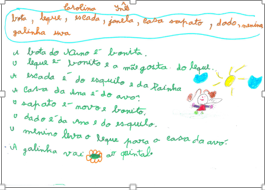 Carolina
bota, leque, escada, janela, casa sapato, dado, menino
galinha uva
A bota do Nuno é bonita.
O leque é bonito e a mãe gosta do leque.
A escada é do esquilo e da Rainha
A casa da Ana é do avô.
O sapato é novo e bonito.
O dado é da Ana e do esquilo.
O menino leva o leque para a casa da avó.
A galinha vai ao quintal